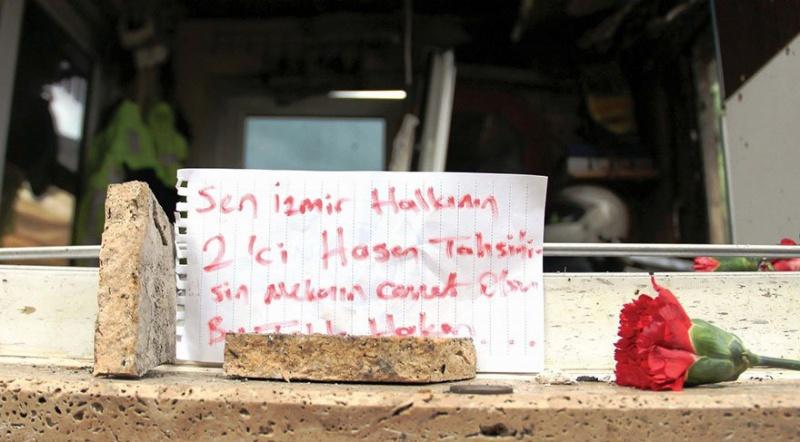 Sen izmir Halkının
2'ci Hasan Tahsini-
sin Mekanın cennet Olsun